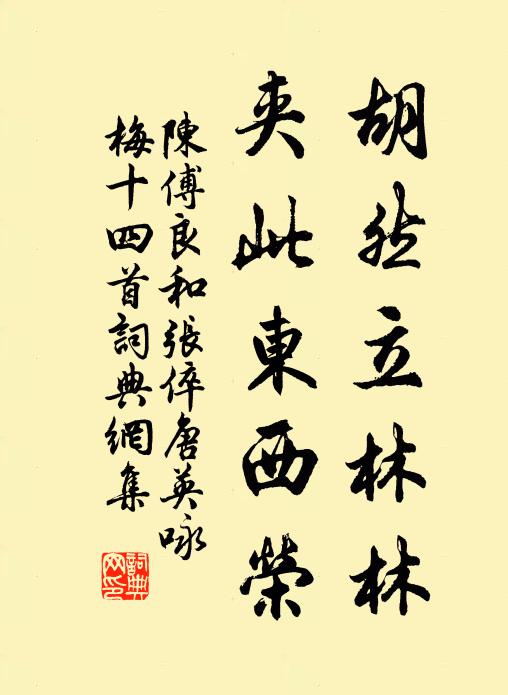 胡然立林林
夾此東西榮
陳傅良和張倅唐英咏
梅十四首詞典網集
詞典
网印